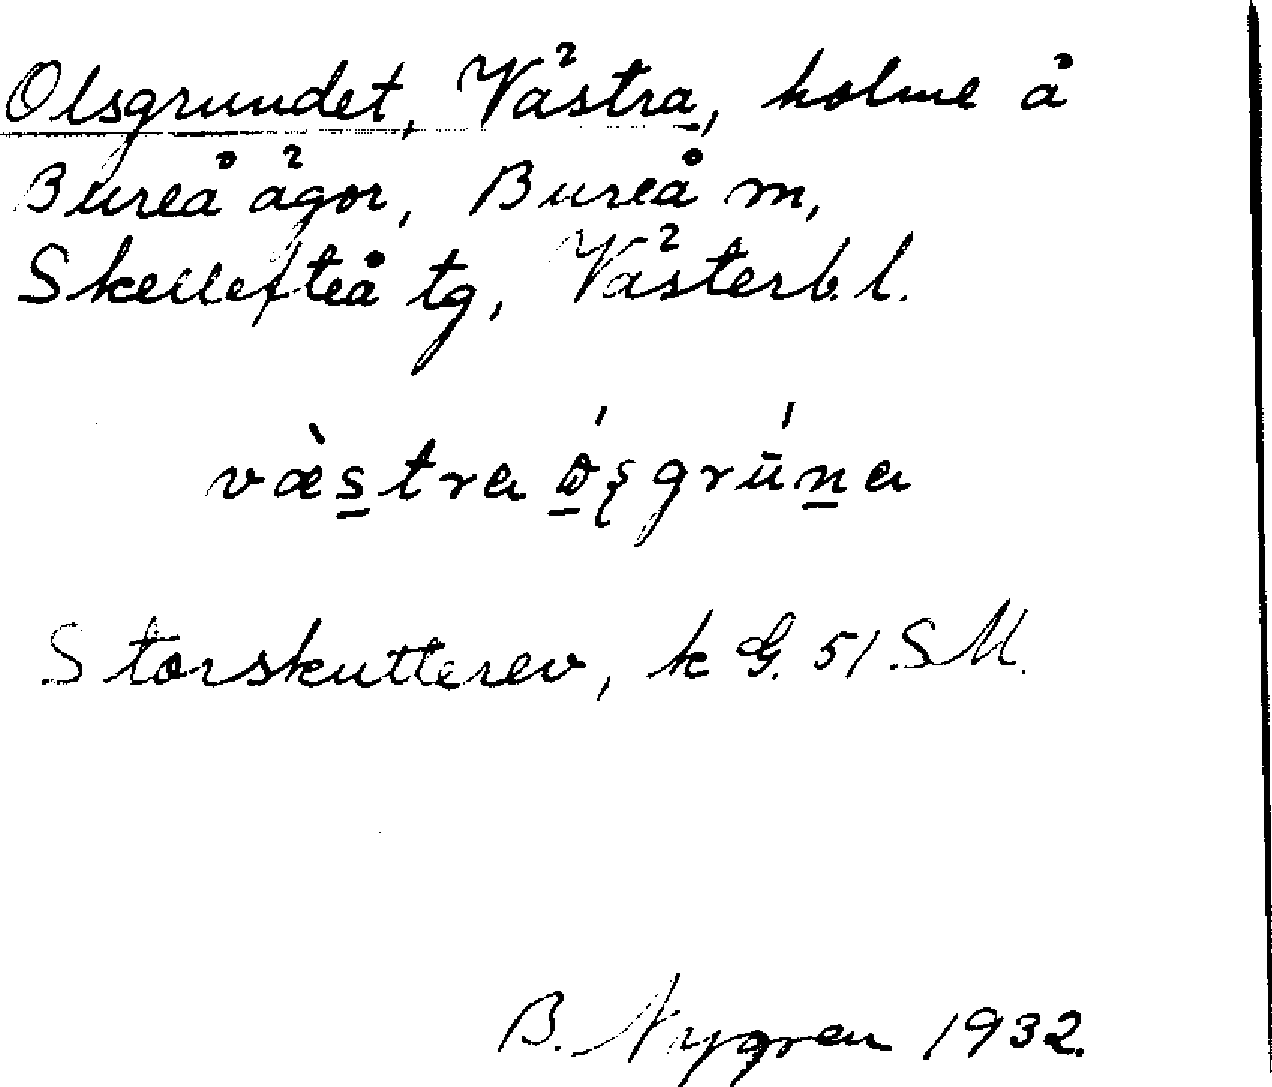 Olsgrundet, Västra, holme å
Bureå ägor, Bureå m,
Skellefteå tg, Västerb. l.
væ̀stra ó̱ʂgrū́ṉa
Storskutterev, k G. 51 SM.
B. Nygren 1932.